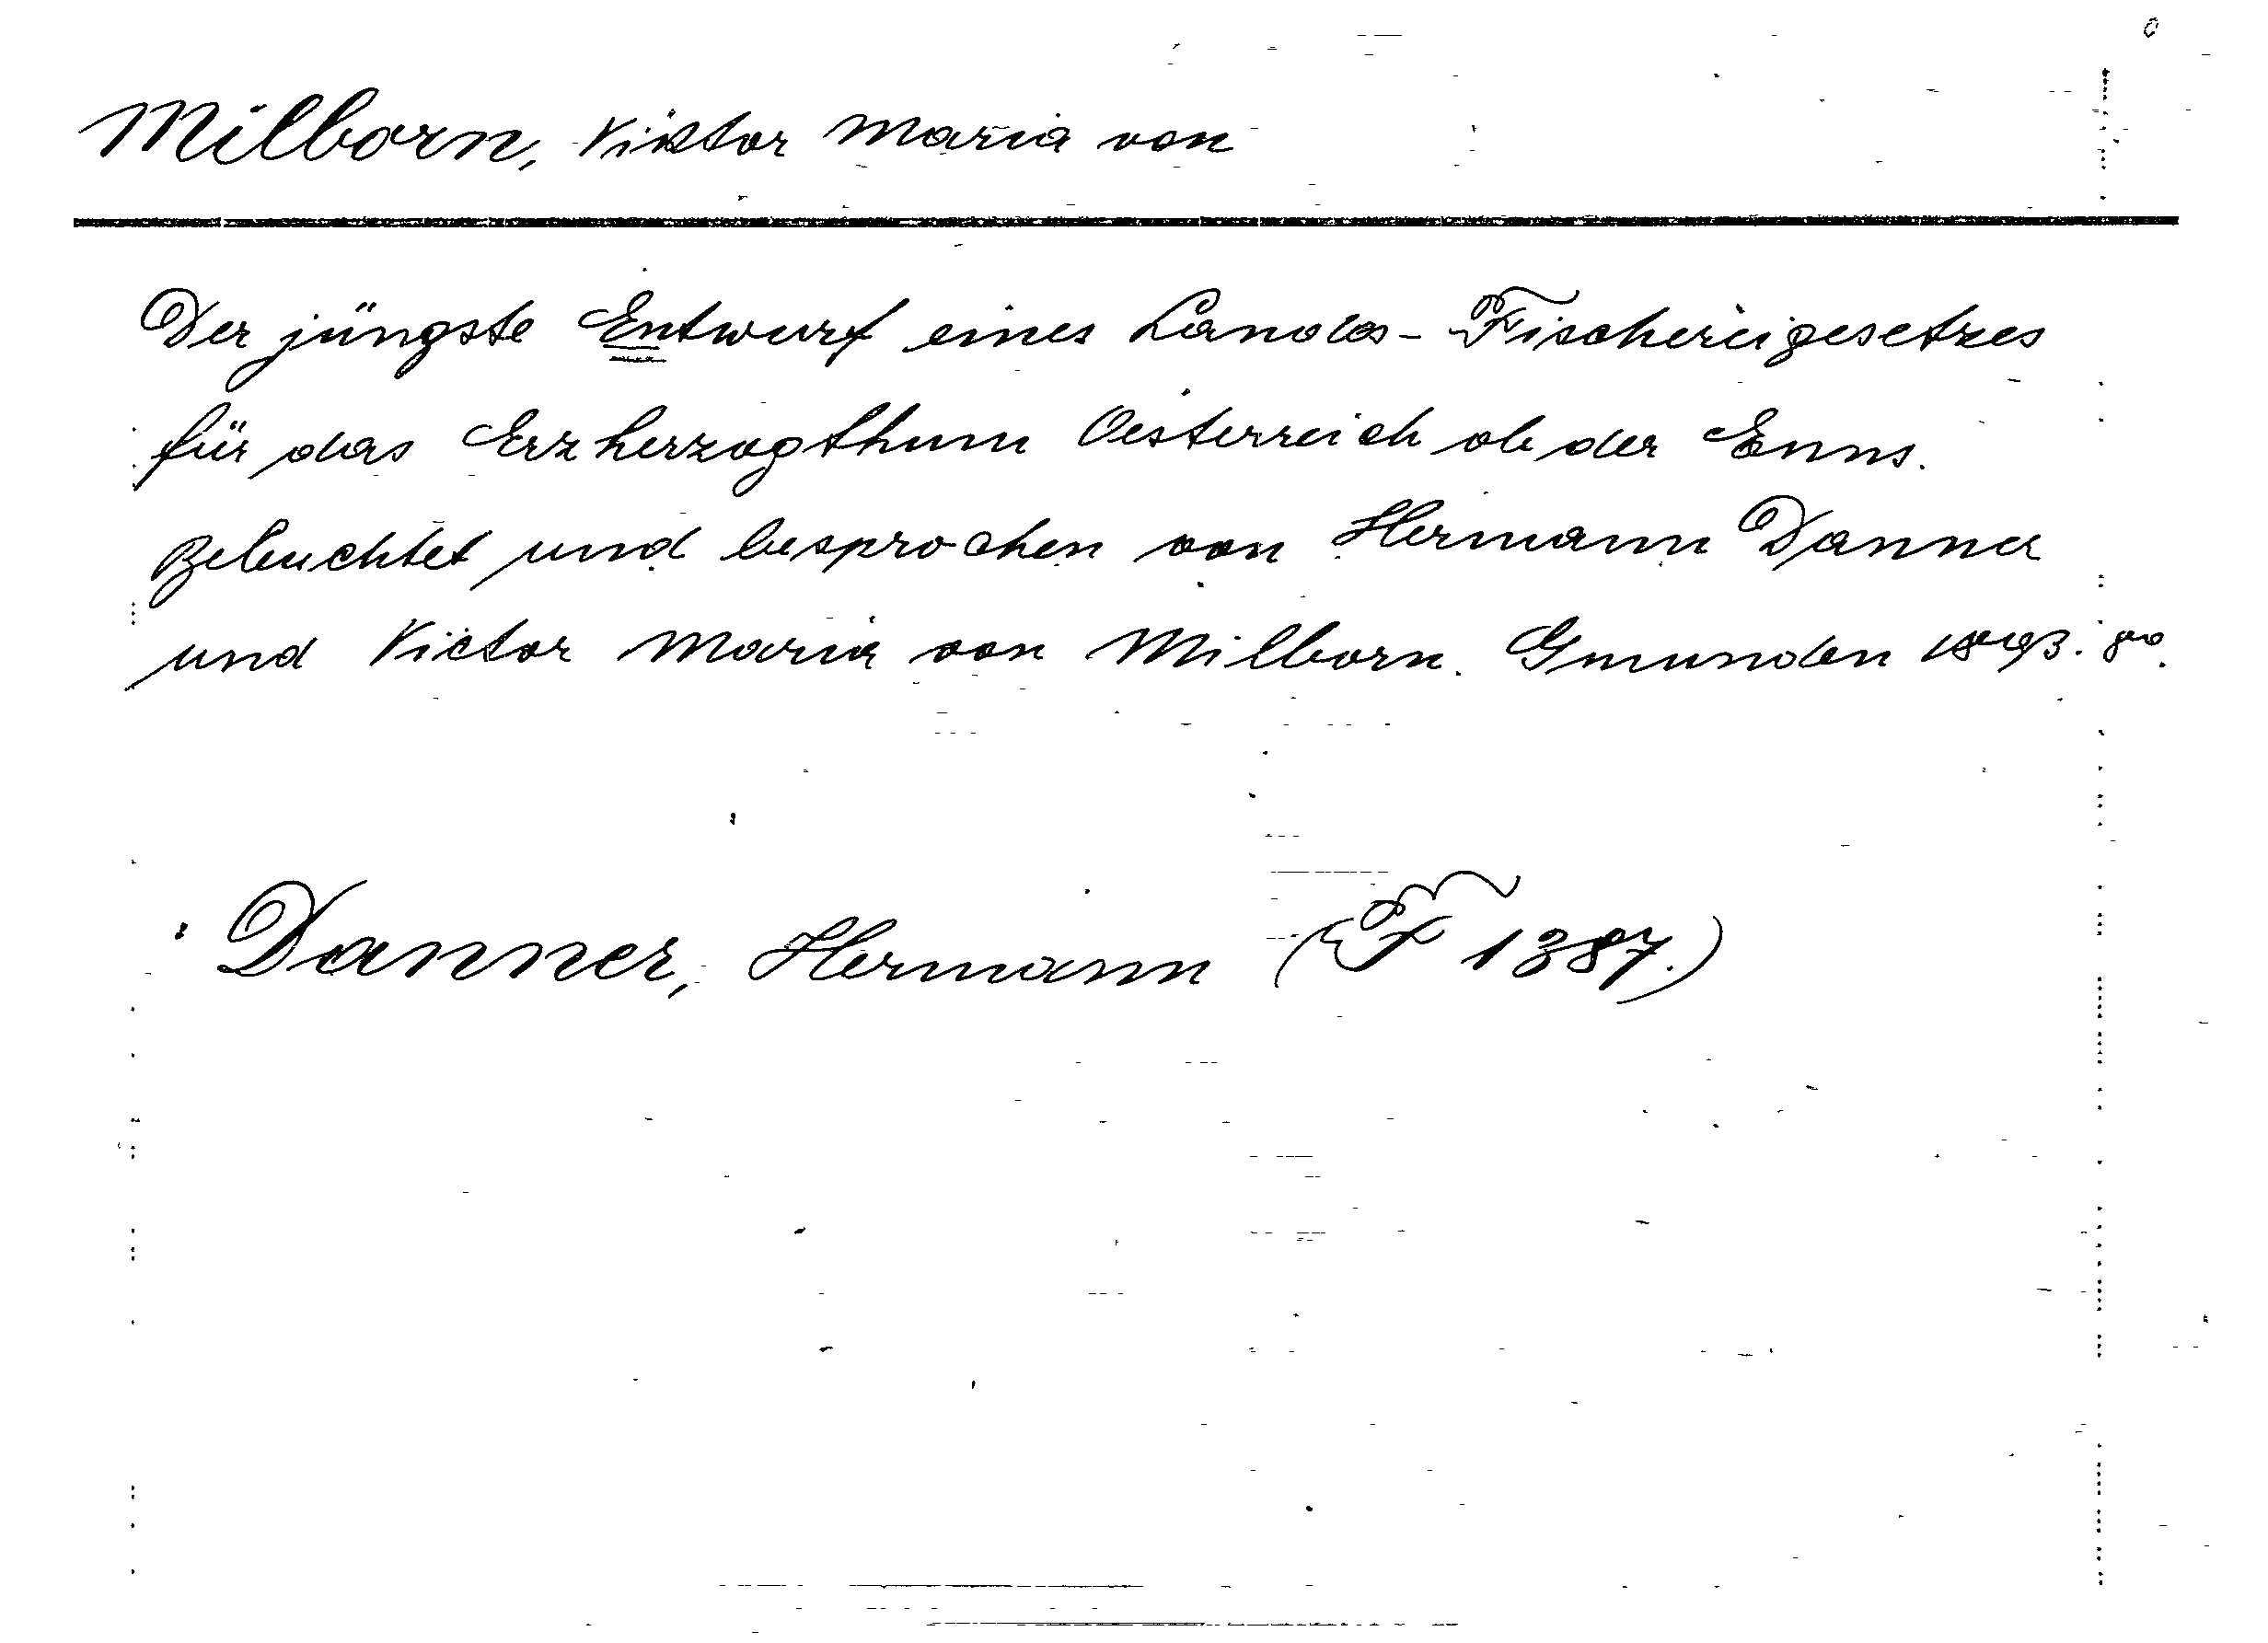 Milborn, Viktor Maria von
Der jüngste Entwurf eines Landes-Fischereigesetzes
für das Erzherzogthum Oesterreich ob der Enns.
Beleuchtet und besprochen von Hermann Danner
und Victor Maria von Milborn. Gmunden 1893. 8°.
Danner, Hermann (F 1387.)